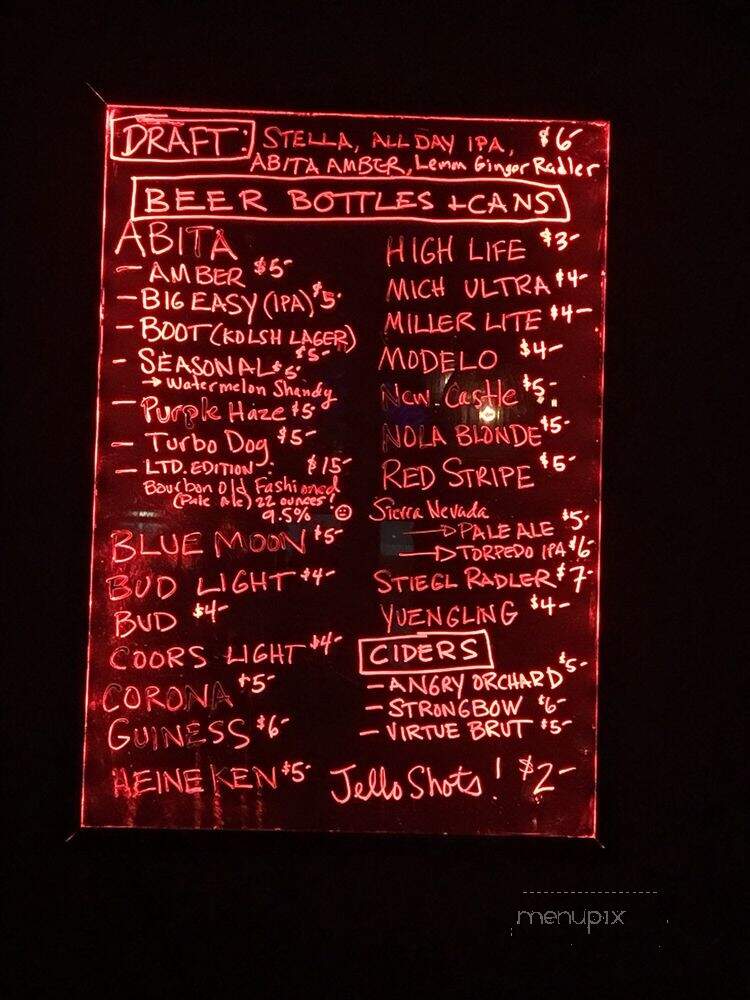 DRAFT: STELLA, ALL DAY IPA, $6-
ABITA AMBER, Lemon Ginger Radler
BEER BOTTLES + CANS
ABITA
- AMBER $5-
- BIG EASY (IPA) $5-
- BOOT (KOLSH LAGER) $5-
- SEASONAL $5-
→ Watermelon Shandy
- Purple Haze $5-
- Turbo Dog $5-
- LTD. EDITION: $15-
Bourbon Old Fashioned
(Pale Ale) 22 ounces!
9.5% ☺
BLUE MOON $5-
BUD LIGHT $4-
BUD $4-
COORS LIGHT $4-
CORONA $5-
GUINESS $6-
HEINEKEN $5-
HIGH LIFE $3-
MICH ULTRA $4-
MILLER LITE $4-
MODELO $4-
New Castle $5-
NOLA BLONDE $5-
RED STRIPE $5-
Sierra Nevada
→ PALE ALE $5-
→ TORPEDO IPA $6-
STIEGL RADLER $7-
YUENGLING $4-
CIDERS
- ANGRY ORCHARD $5-
- STRONGBOW $6-
- VIRTUE BRUT $5-
Jello Shots! $2-
menupix